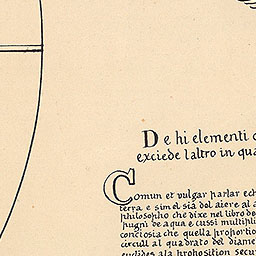 De hi elementi
exciede laltro in qua
Comun et vulgar parlar ech
terra e simel sia dol aiere al a
philosopho che dixe nel libro de
pugni de aqua e cussi multipli
conciosia che quella proportio
circull al quadrato del diame
euclides ala proposition secun